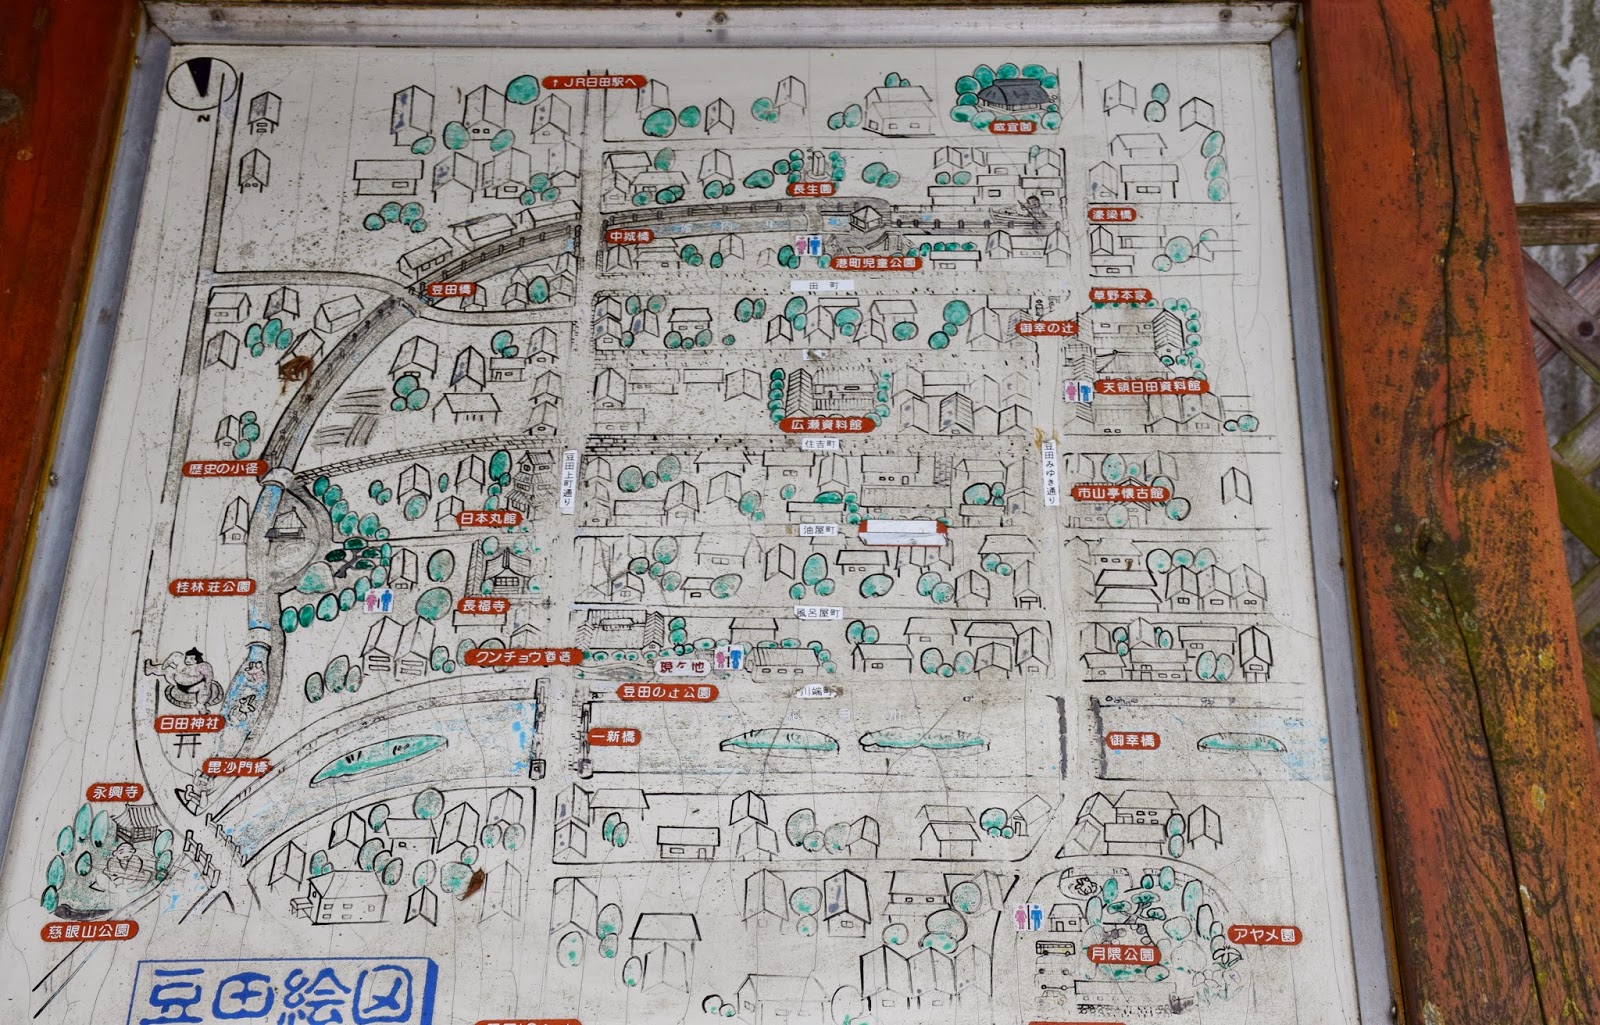 N
↑JR日田駅へ
咸宜園
長生園
濠梁橋
中城橋
港町児童公園
田町
豆田橋
草野本家
御幸の辻
天領日田資料館
広瀬資料館
住吉町
歴史の小径
豆田上町通り
豆田みゆき通り
市山亭懐古館
日本丸館
油屋町
桂林荘公園
長福寺
風呂屋町
クンチョウ酒造
現在地
豆田の辻公園
川端町
日田神社
一新橋
御幸橋
毘沙門橋
永興寺
慈眼山公園
アヤメ園
月隈公園
豆田絵図